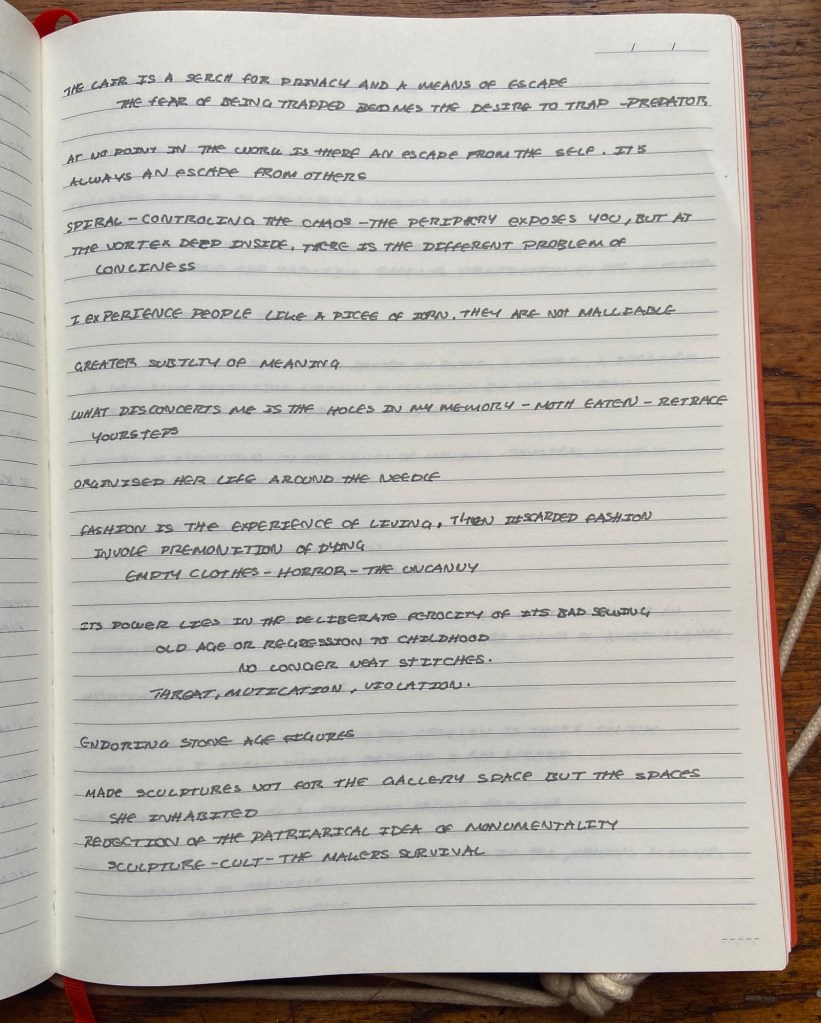 THE LAIR IS A SERCH FOR PRIVACY AND A MEANS OF ESCAPE
THE FEAR OF BEING TRAPPED BECOMES THE DESIRE TO TRAP - PREDATOR
AT NO POINT IN THE WORK IS THERE AN ESCAPE FROM THE SELF. ITS
ALWAYS AN ESCAPE FROM OTHERS
SPIRAL - CONTROLING THE CHAOS - THE PERIPHERY EXPOSES YOU, BUT AT
THE VORTEX DEEP INSIDE, THERE IS THE DIFFERENT PROBLEM OF
LONLINESS
I EXPERIENCE PEOPLE LIKE A PICEE OF IORN. THEY ARE NOT MALLEABLE
GREATER SUBTLTY OF MEANING
WHAT DISCONCERTS ME IS THE HOLES IN MY MEMORY - MOTH EATEN - RETRACE
YOURSTEPS
ORGANISED HER LIFE AROUND THE NEEDLE
FASHION IS THE EXPERIENCE OF LIVING, THEN DISCARDED FASHION
INVOLE PREMONITION OF DYING
EMPTY CLOTHES - HORROR - THE UNCANNY
ITS POWER LIES IN THE DELIBERATE FEROCITY OF ITS BAD SEWING
OLD AGE OR REGRESSION TO CHILDHOOD
NO LONGER NEAT STITCHES.
THREAT, MUTILATION, VIOLATION.
ENDORING STONE AGE FIGURES
MADE SCULPTURES NOT FOR THE GALLERY SPACE BUT THE SPACES
SHE INHABITED
REDECTION OF THE PATRIARICAL IDEA OF MONUMENTALITY
SCULPTURE - CULT - THE MAKERS SURVIVAL